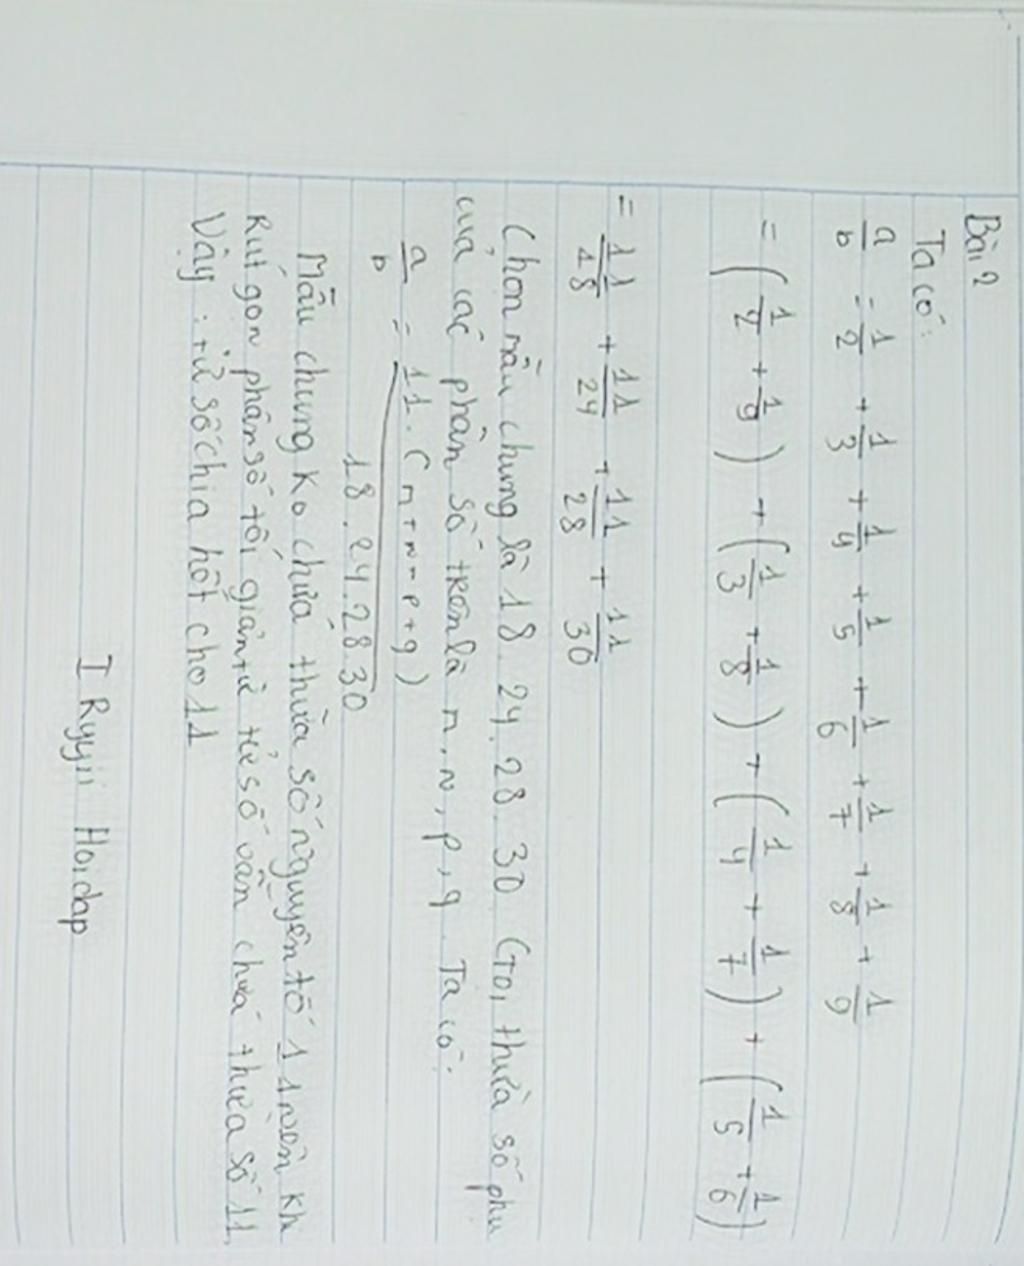 Bài 2
Ta có:
a/b = 1/2 + 1/3 + 1/4 + 1/5 + 1/6 + 1/7 + 1/8 + 1/9
= (1/2 + 1/9) + (1/3 + 1/8) + (1/4 + 1/7) + (1/5 + 1/6)
= 11/18 + 11/24 + 11/28 + 11/30
Chọn mẫu chung là 18.24.28.30. Gọi thừa số phụ
của các phân số trên là m, n, p, q. Ta có:
a/b = 11.(m+n+p+q)/18.24.28.30
Mẫu chung ko chứa thừa số nguyên tố 11 nên khi
Rút gọn phân số tối giản từ tử số vẫn chứa thừa số 11.
Vậy: tử số chia hết cho 11
I Ryyji Hoidap